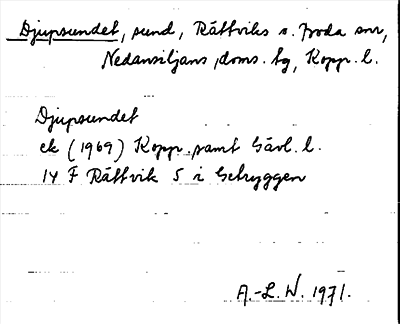 Djupsundet, sund, Rättviks s. Boda snr,
Nedansiljans doms. tg, Kopp. l.
Djupsundet
ek (1969) Kopp. samt Gävl. l.
14 F Rättvik 5 i Getryggen
A.-L. W. 1971.